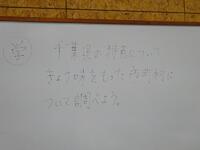 学 千葉県の特色について
きょう味をもった市町村に
ついて調べよう。